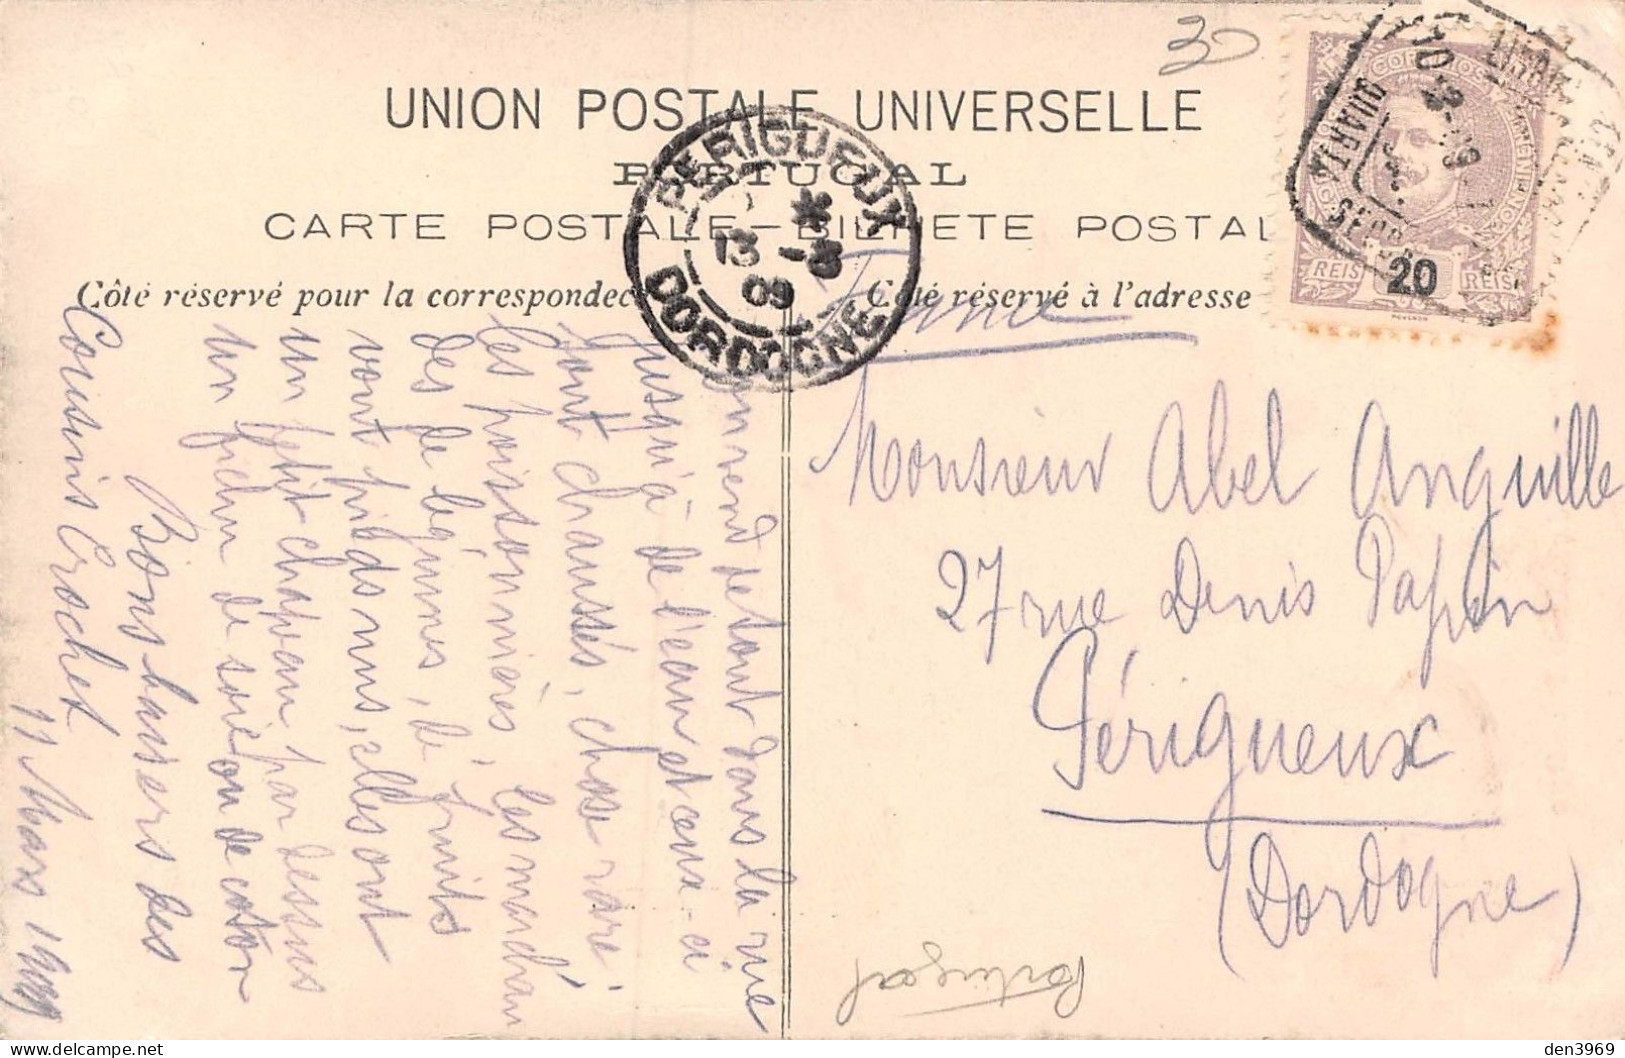 30
UNION POSTALE UNIVERSELLE
PORTUGAL
CARTE POSTALE — BILHETE POSTAL
Côté réservé pour la correspondec
Côté réservé à l'adresse
PERIGUEUX
13 -3
09
DORDOGNE
CORREIOS
QUARTA SECÇÃO
REIS 20 REIS
France
Monsieur Abel Anguille
27 rue Denis Papin
Périgueux
(Dordogne)
Portugal
On vend de tout dans la rue
jusqu'à de l'eau et ceux-ci
sont chaussés, chose rare.
Les poissonnières, les marchan
des de légumes, de fruits
vont pieds nus, elles ont
un petit chapeau par dessus
un fichu de soie ou de coton
Bons baisers des
Cousins Crochet
11 Mars 1909
den3969